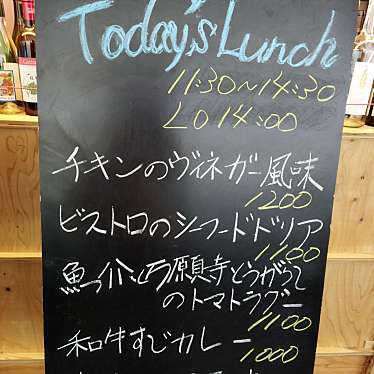 Today's Lunch
11:30~14:30
LO 14:00
チキンのヴィネガー風味
1200
ビストロのシーフードドリア
1100
魚介と万願寺とうがらし
のトマトラグー
1100
和牛すじカレー
1000